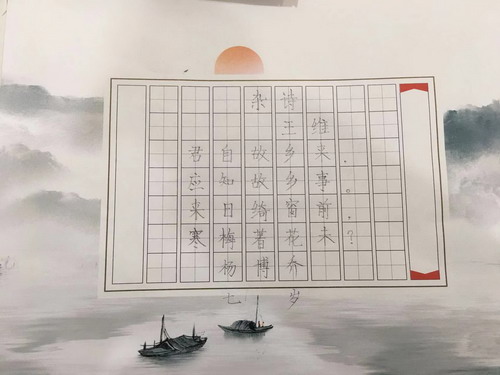 杂诗
王维
君自故乡来.
应知故乡事。
来日绮窗前.
寒梅著花未?
杨博
七岁